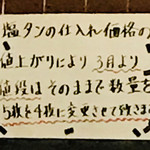 塩タンの仕入れ価格の
値上がりにより3月より
値段はそのまま数量を
5枚を4枚に変更させて頂きま